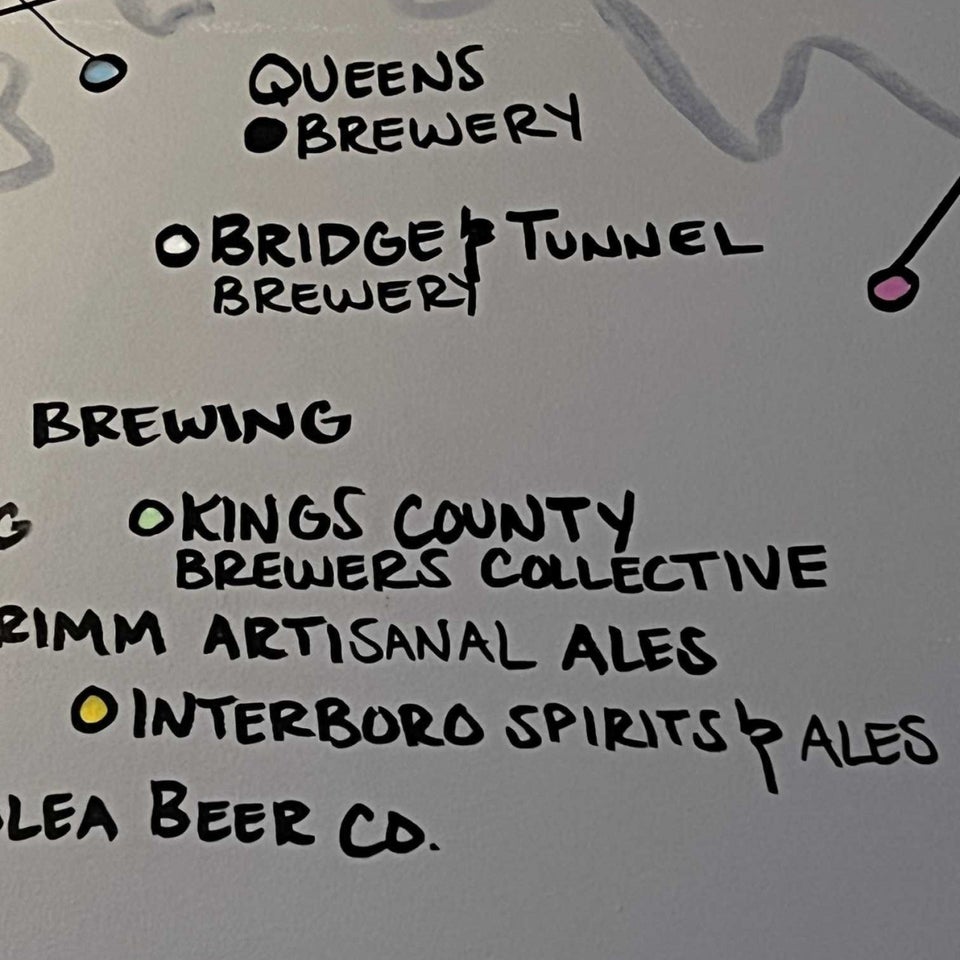 QUEENS
BREWERY
BRIDGE & TUNNEL
BREWERY
BREWING
G KINGS COUNTY
BREWERS COLLECTIVE
RIMM ARTISANAL ALES
INTERBORO SPIRITS & ALES
LEA BEER CO.